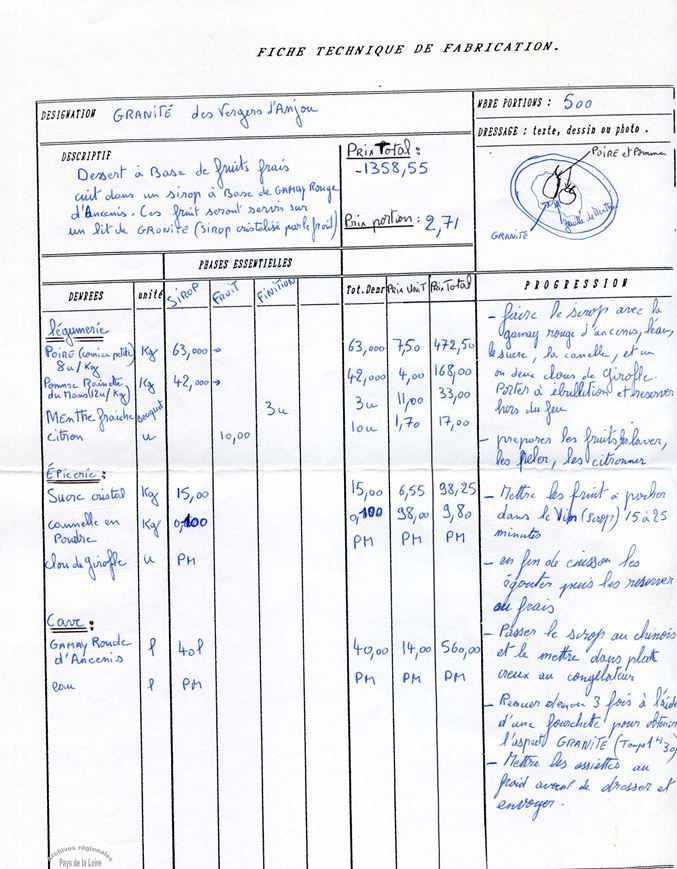 FICHE TECHNIQUE DE FABRICATION.
DESIGNATION GRANITÉ des Vergers d'Anjou
NBRE PORTIONS : 500
DRESSAGE : texte, dessin ou photo .
POIRE et Pomme
GRANITÉ
DESCRIPTIF
Dessert à Base de fruits frais
cuit dans un sirop à Base de GAMAY Rouge
d'Ancenis. Ces fruit seront servis sur
un lit de GRANITE (sirop cristalisé par le froit)
Prix Total :
-1358,55
Prix portion : 2,71
PHASES ESSENTIELLES
DENREES unité SIROP FRUIT FINITION Tot.Denr Prix UNIT Prix Total PROGRESSION
légumerie
POIRE (comice petite) Kg 63,000 → 63,000 7,50 472,50
8u/Kg
Pomme Rainette Kg 42,000 → 42,000 4,00 168,00
du Mans 12u/Kg)
Menthe fraiche bouquet 3u 3u 11,00 33,00
citron u 10,00 10u 1,70 17,00
Épicerie :
Sucre cristal Kg 15,00 15,00 6,55 98,25
cannelle en Kg 0,100 0,100 98,00 9,80
Poudre
clou de girofle u PM PM
Cave :
GAMAY Roude l 40l 40,00 14,00 560,00
d'Ancenis
eau l PM PM PM PM
- faire le sirop avec la
gamay rouge d'ancenis, l'eau,
le sucre, la canelle, et un
ou deux clous de Girofle.
Porter à ébullition et reserver
hors du feu
- preparer les fruits les laver,
les peler, les citronner
- Mettre les fruit a pocher
dans le Vin (sirop) 15 à 25
minutes
- en fin de cuisson les
égouter puis les reserver
au frais
- Passer le sirop au chinois
et le mettre dans plat
creux au congelateur
- Remuer 3 fois à l'aide
d'une fourchette pour obtenir
l'aspect GRANITÉ
- Mettre les assiettes au
froid avant de dresser et
envoyer.
Archives régionales
Pays de la Loire